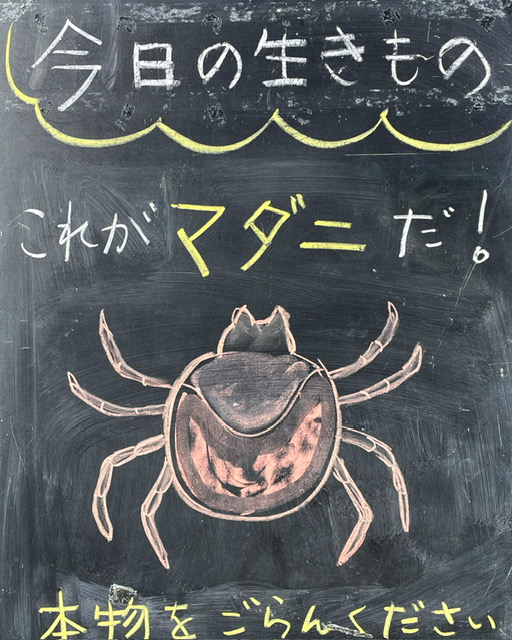 今日の生きもの
これがマダニだ!
本物をごらんください